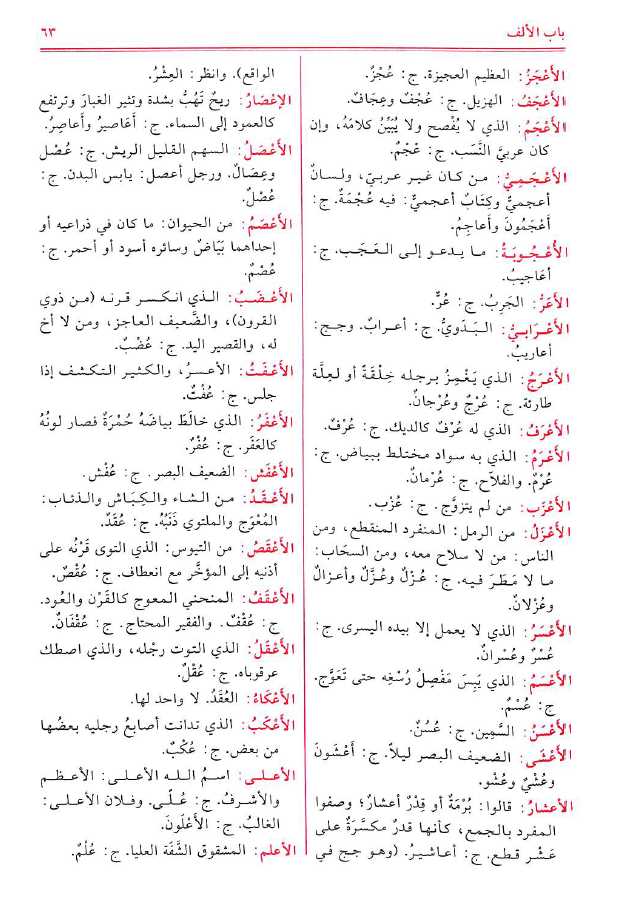 باب الألف
٦٣
الأَعْجَزُ: العظيم العجيزة. ج: عُجْزٌ.
الأَعْجَفُ: الهزيل. ج: عُجْفٌ وعِجَافٌ.
الأَعْجَمُ: الذي لا يُفْصح ولا يُبَيِّنُ كلامَهُ، وإن
كان عربيَّ النَّسَب. ج: عُجْمٌ.
الأَعْجَمِيُّ: من كان غير عربيّ، ولسانٌ
أعجميٌّ وكِتَابٌ أعجميٌّ: فيه عُجْمَةٌ. ج:
أَعْجَمُونَ وأَعاجِمُ.
الأُعْجُوبَةُ: ما يدعو إلى العَجَب. ج:
أَعَاجيبُ.
الأَعَرُّ: الجَرِبُ. ج: عُرٌّ.
الأَعْرَابيُّ: البَدَويُّ. ج: أعرابٌ. وجج:
أعاريبُ.
الأَعْرَجُ: الذي يَغْمِزُ برجله خِلْقَةً أو لعِلَّة
طارئة. ج: عُرْجٌ وعُرْجانٌ.
الأَعْرَفُ: الذي له عُرْفٌ كالديك. ج: عُرْفٌ.
الأَعْرَمُ: الذي به سواد مختلط ببياض. ج:
عُرْمٌ. والفلاّح. ج: عُرْمانٌ.
الأَعْزَب: من لم يتزوَّج. ج: عُزْب.
الأَعْزَلُ: من الرمل: المنفرد المنقطع، ومن
الناس: من لا سلاح معه، ومن السحَاب:
ما لا مَطَرَ فيه. ج: عُزْلٌ وعُزَّلٌ وأعزالٌ
وعُزْلانٌ.
الأَعْسَرُ: الذي لا يعمل إلا بيده اليسرى. ج:
عُسْرٌ وعُسْرانٌ.
الأَعْسَمُ: الذي يَبِسَ مَفْصِلُ رُسْغِه حتى تَعَوَّج.
ج: عُسْمٌ.
الأَعْسَنُ: السَّمِين. ج: عُسُنٌ.
الأَعْشَى: الضعيف البصر ليلاً. ج: أَعْشَونَ
وعُشْيٌ وعُشْو.
الأَعشارُ: قالوا: بُرْمَةٌ أو قِدْرٌ أعشارٌ؛ وصفوا
المفرد بالجمع، كأنها قدرٌ مكسَّرةٌ على
عَشْر قطع. ج: أعاشيرُ. (وهو جج في
الواقع). وانظر: العِشْرُ.
الإعْصَارُ: ريحٌ تَهُبُّ بشدة وتثير الغبارَ وترتفع
كالعمود إلى السماء. ج: أَعَاصيرُ وأَعاصِرُ.
الأَعْصَلُ: السهم القليل الريش. ج: عُصْل
وعِصَالٌ. ورجل أعصل: يابس البدن. ج:
عُصْلٌ.
الأَعْصَمُ: من الحيوان: ما كان في ذراعيه أو
إحداهما بَيَاضٌ وسائره أسود أو أحمر. ج:
عُصْمٌ.
الأَعْضَبُ: الذي انكسر قرنه (من ذوي
القرون)، والضَّعيف العاجز، ومن لا أخ
له، والقصير اليد. ج: عُضْبٌ.
الأَعْفَتُ: الأعسرُ، والكثير التكشف إذا
جلس. ج: عُفْتٌ.
الأَعْفَرُ: الذي خالطَ بياضَهُ حُمْرَةٌ فصار لونُهُ
كالعَفَر. ج: عُفْرٌ.
الأَعْفَش: الضعيف البصر. ج: عُفْش.
الأَعْقَدُ: من الشاء والكِبَاش والذئاب:
المُعْوَج والملتوي ذَنَبُهُ. ج: عُقَدٌ.
الأَعْقَصُ: من التيوس: الذي التوى قَرْنُه على
أذنيه إلى المؤخَّر مع انعطاف. ج: عُقْصٌ.
الأَعْقَفُ: المنحني المعوج كالقَرْن والعُود.
ج: عُقْفٌ. والفقير المحتاج. ج: عُقْفَانٌ.
الأَعْقَلُ: الذي التوت رجْله، والذي اصطك
عرقوباه. ج: عُقْلٌ.
الأَعْكَاءُ: العُقَدُ. لا واحد لها.
الأَعْكَبُ: الذي تدانت أصابعُ رجليه بعضُها
من بعض. ج: عُكْبٌ.
الأَعلى: اسمُ الله الأعلى: الأعظم
والأشرفُ. ج: عُلّى. وفلان الأعلى:
الغالبُ. ج: الأَعْلَونَ.
الأعلم: المشقوق الشَّفَة العليا. ج: عُلْمٌ.